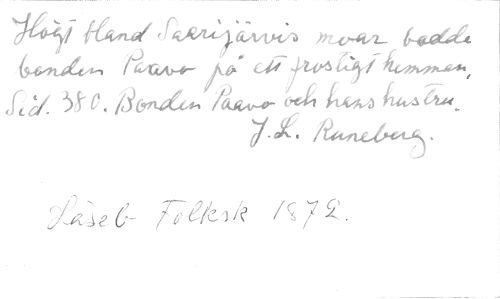 Högt bland Saarijärvis moar bodde
bonden Paavo på ett frostigt hemman,
Sid. 380. Bonden Paavo och hans hustru.
J. L. Runeberg.
Läseb Folksk 1872.